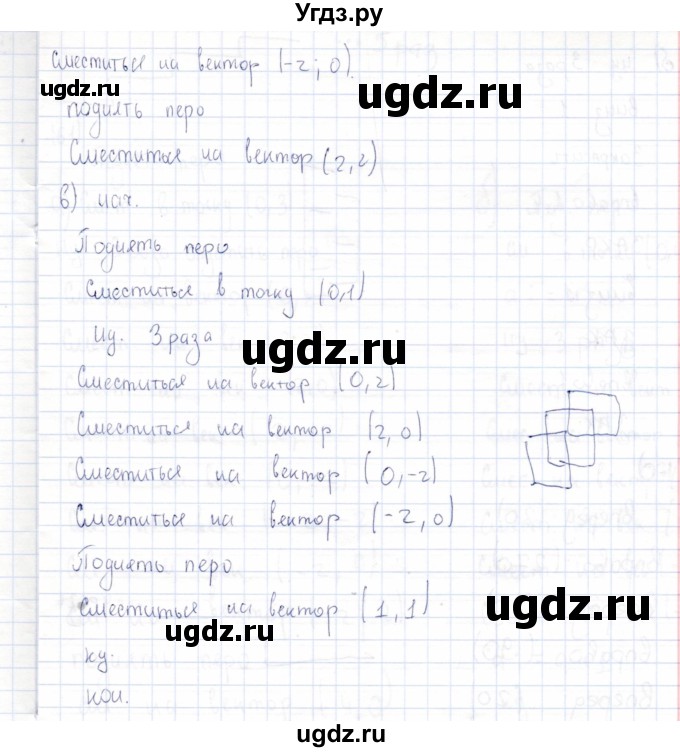 Угдз.ру
Сместиться на вектор (-2; 0).
ugdz.ru
ugdz.ru
поднять перо
Сместиться на вектор (2, 2)
в) нач.
Поднять перо
Сместиться в точку (0,1)
Нц. 3 раза
ugdz.ru
ugdz.ru
Сместиться на вектор (0, 2)
Сместиться на вектор (2, 0)
Сместиться на вектор (0, -2)
Сместиться на вектор (-2, 0)
Поднять перо
Сместиться на вектор (1, 1)
ugdz.ru
ugdz.ru
кц.
кон.
ugdz.ru